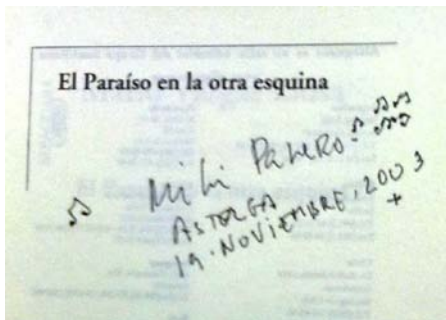 El Paraíso en la otra esquina
Michi Panero
ASTORGA
19. NOVIEMBRE, 2003